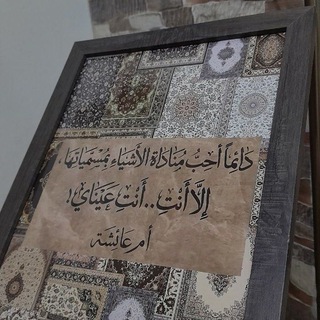 دَائِماً أُحِبُ مُنَادَاةَ الأَشْيَاءِ بِمُسَمَيَاتِهَا،
إِلَّا أَنْتِ..أَنْتِ عَيْنَايَ!
أم عَائِشة